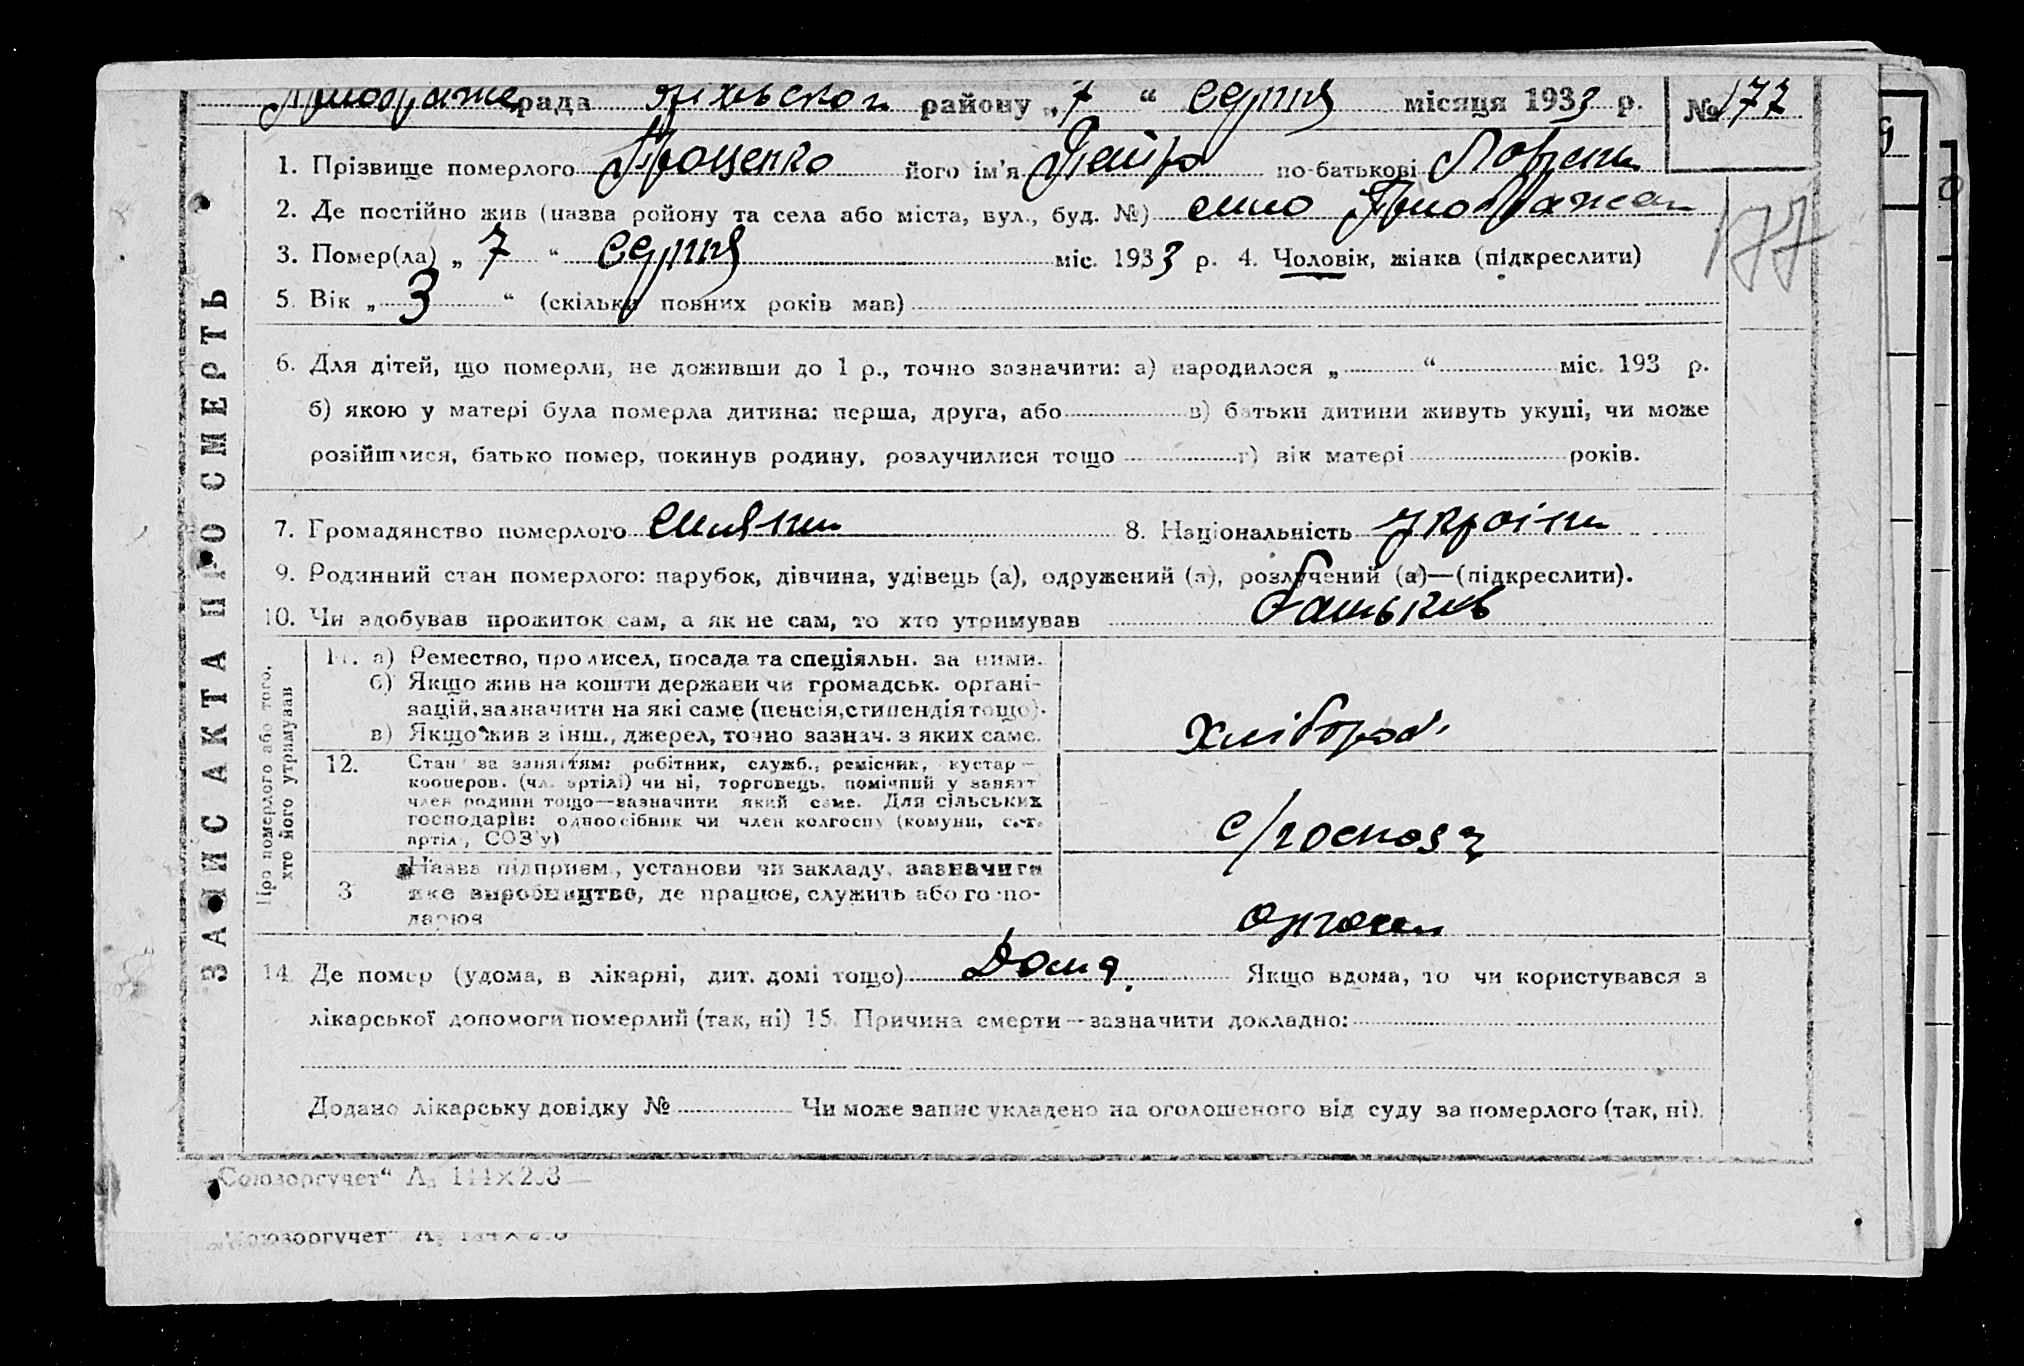 рада району „ 7 “ серпня місяця 1933 р. № 177
1. Прізвище померлого Проценко його ім'я Петро по-батькові
2. Де постійно жив (назва ройону та села або міста, вул., буд. №) село
177
3. Помер(ла) „ 7 “ серпня міс. 1933 р. 4. Чоловік, жінка (підкреслити)
5. Вік „ 3 “ (скільки повних років мав)
6. Для дітей, що померли, не доживши до 1 р., точно зазначити: а) народилося „ “ міс. 193 р.
б) якою у матері була померла дитина: перша, друга, або в) батьки дитини живуть укупі, чи може
розійшлися, батько помер, покинув родину, розлучилися тощо г) вік матері років.
7. Громадянство померлого 8. Національність україн
9. Родинний стан померлого: парубок, дівчина, удівець (а), одружений (а), розлучений (а)—(підкреслити).
10. Чи здобував прожиток сам, а як не сам, то хто утримував батьків
ЗАПИС АКТА ПРО СМЕРТЬ
Про померлого або того, хто його утримував
11. а) Ремество, промисел, посада та спеціяльн. за ними.
б) Якщо жив на кошти держави чи громадськ. органі-
зацій, зазначити на які саме (пенсія, стипендія тощо).
в) Якщо жив з інш., джерел, точно зазнач. з яких саме.
хлібороб
12. Стан за заняттям: робітник, служб., ремісник, кустар—
кооперов. (чл. артілі) чи ні, торговець, помічний у занятт
член родини тощо—зазначити який саме. Для сільських
господарів: одноосібник чи член колгоспу (комуни, с.-г.
артіл , СОЗ'у)
3 Назва підприєм., установи чи закладу, зазначити
яке виробництво, де працює, служить або госпо-
дарює
14. Де помер (удома, в лікарні, дит. домі тощо) Дома Якщо вдома, то чи користувався з
лікарської допомоги померлий (так, ні) 15. Причина смерти—зазначити докладно:
Додано лікарську довідку № Чи може запис укладено на оголошеного від суду за померлого (так, ні).
„Союзоргучет“
„Союзоргучет“